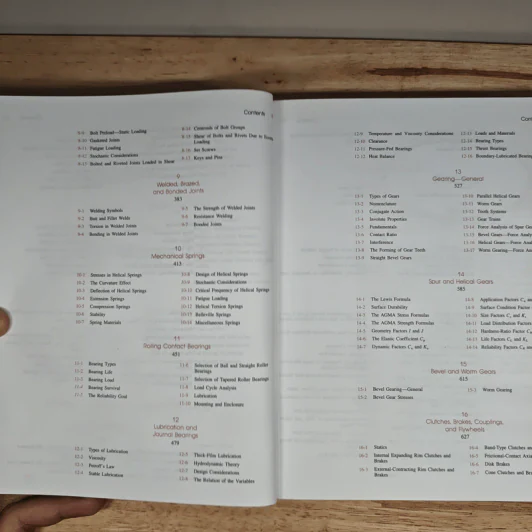 Contents
8-8 Bolt Preload—Static Loading
8-10 Gasketed Joints
8-11 Fatigue Loading
8-12 Stochastic Considerations
8-13 Bolted and Riveted Joints Loaded in Shear
8-14 Centroids of Bolt Groups
8-15 Shear of Bolts and Rivets Due to Eccentric
Loading
8-16 Set Screws
8-17 Keys and Pins
9
Welded, Brazed,
and Bonded Joints
383
9-1 Welding Symbols
9-2 Butt and Fillet Welds
9-3 Torsion in Welded Joints
9-4 Bending in Welded Joints
9-5 The Strength of Welded Joints
9-6 Resistance Welding
9-7 Bonded Joints
10
Mechanical Springs
413
10-1 Stresses in Helical Springs
10-2 The Curvature Effect
10-3 Deflection of Helical Springs
10-4 Extension Springs
10-5 Compression Springs
10-6 Stability
10-7 Spring Materials
10-8 Design of Helical Springs
10-9 Stochastic Considerations
10-10 Critical Frequency of Helical Springs
10-11 Fatigue Loading
10-12 Helical Torsion Springs
10-13 Belleville Springs
10-14 Miscellaneous Springs
11
Rolling Contact Bearings
451
11-1 Bearing Types
11-2 Bearing Life
11-3 Bearing Load
11-4 Bearing Survival
11-5 The Reliability Goal
11-6 Selection of Ball and Straight Roller
Bearings
11-7 Selection of Tapered Roller Bearings
11-8 Load Cycle Analysis
11-9 Lubrication
11-10 Mounting and Enclosure
12
Lubrication and
Journal Bearings
479
12-1 Types of Lubrication
12-2 Viscosity
12-3 Petroff's Law
12-4 Stable Lubrication
12-5 Thick-Film Lubrication
12-6 Hydrodynamic Theory
12-7 Design Considerations
12-8 The Relation of the Variables
12-9 Temperature and Viscosity Considerations
12-10 Clearance
12-11 Pressure-Fed Bearings
12-12 Heat Balance
12-13 Loads and Materials
12-14 Bearing Types
12-15 Thrust Bearings
12-16 Boundary-Lubricated Bearing
13
Gearing—General
527
13-1 Types of Gears
13-2 Nomenclature
13-3 Conjugate Action
13-4 Involute Properties
13-5 Fundamentals
13-6 Contact Ratio
13-7 Interference
13-8 The Forming of Gear Teeth
13-9 Straight Bevel Gears
13-10 Parallel Helical Gears
13-11 Worm Gears
13-12 Tooth Systems
13-13 Gear Trains
13-14 Force Analysis of Spur Ge
13-15 Bevel Gears—Force Analy
13-16 Helical Gears—Force Ana
13-17 Worm Gearing—Force A
14
Spur and Helical Gears
585
14-1 The Lewis Formula
14-2 Surface Durability
14-3 The AGMA Stress Formulas
14-4 The AGMA Strength Formulas
14-5 Geometry Factors I and J
14-6 The Elastic Coefficient Cp
14-7 Dynamic Factors Cv and Kv
14-8 Application Factors Ca an
14-9 Surface Condition Factor
14-10 Size Factors Cs and Ks
14-11 Load Distribution Factors
14-12 Hardness-Ratio Factor C
14-13 Life Factors CL and KL
14-14 Reliability Factors CR an
15
Bevel and Worm Gears
615
15-1 Bevel Gearing—General
15-2 Bevel Gear Stresses
15-3 Worm Gearing
16
Clutches, Brakes, Couplings,
and Flywheels
627
16-1 Statics
16-2 Internal Expanding Rim Clutches and
Brakes
16-3 External-Contracting Rim Clutches and
Brakes
16-4 Band-Type Clutches an
16-5 Frictional-Contact Axia
16-6 Disk Brakes
16-7 Cone Clutches and Br